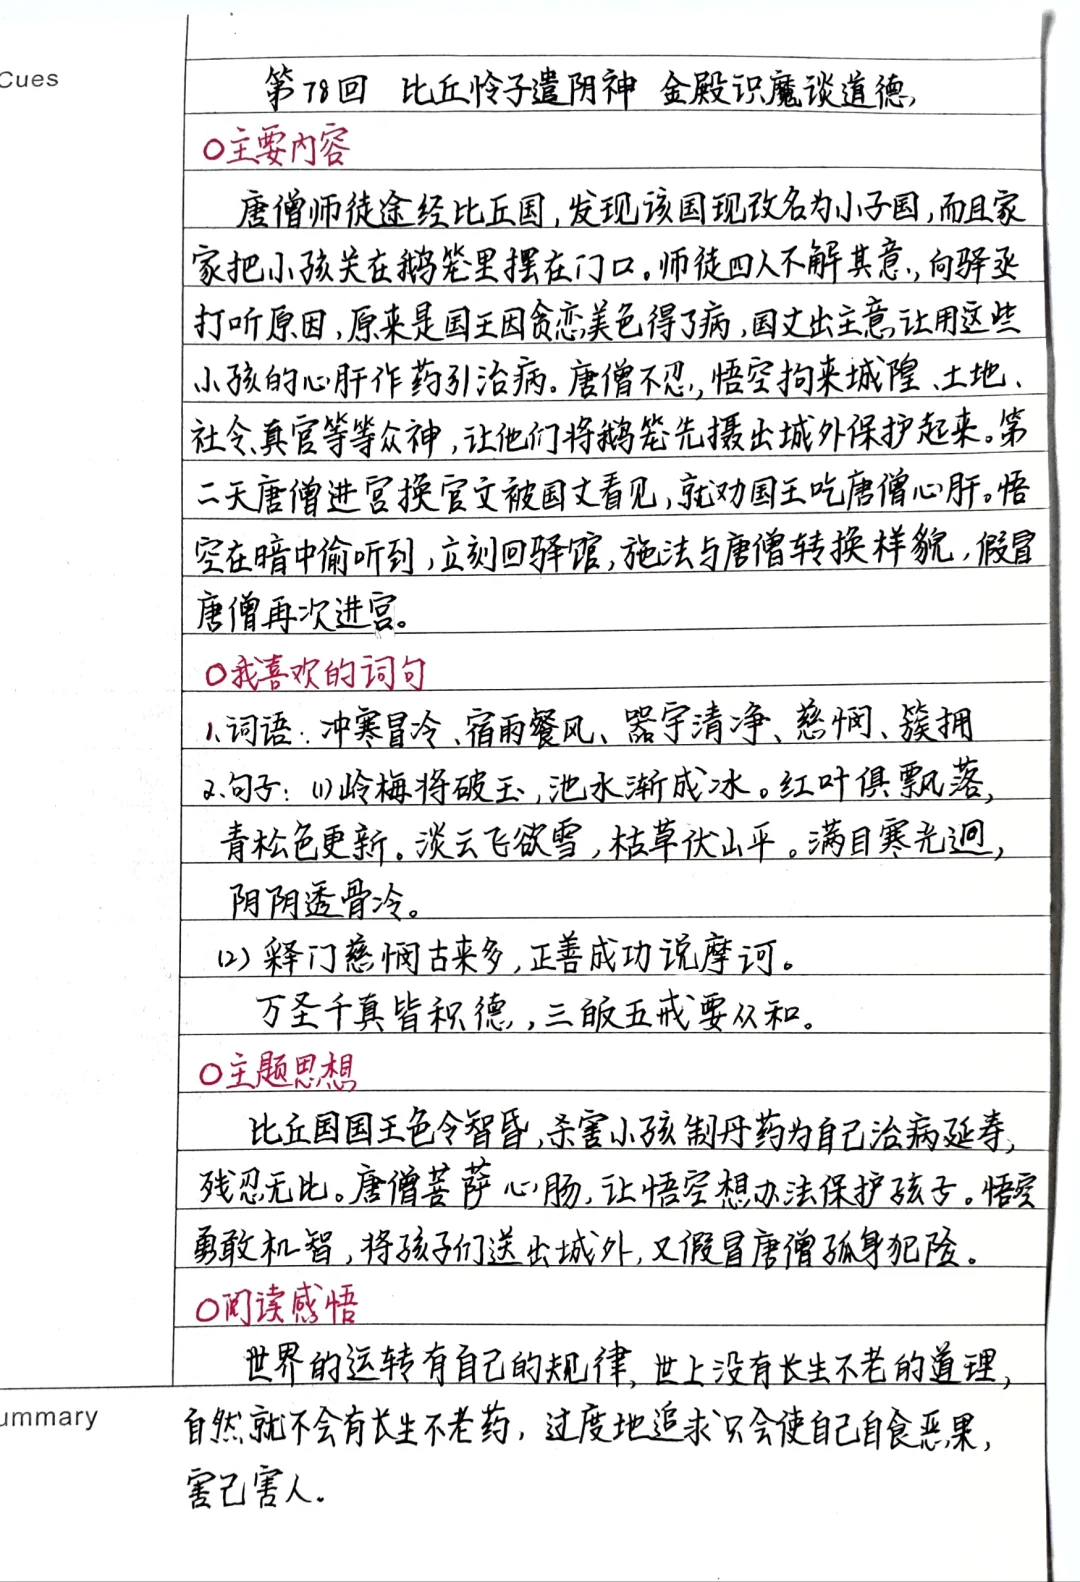 Cues
第78回 比丘怜子遣阴神 金殿识魔谈道德
○主要内容
唐僧师徒途经比丘国,发现该国现改名为小子国,而且家
家把小孩关在鹅笼里摆在门口。师徒四人不解其意,向驿丞
打听原因,原来是国王因贪恋美色得了病,国丈出主意让用这些
小孩的心肝作药引治病。唐僧不忍,悟空拘来城隍、土地、
社令、真官等等众神,让他们将鹅笼先摄出城外保护起来。第
二天唐僧进宫换官文被国丈看见,就劝国王吃唐僧心肝。悟
空在暗中偷听到,立刻回驿馆,施法与唐僧转换样貌,假冒
唐僧再次进宫。
○我喜欢的词句
1.词语:冲寒冒冷、宿雨餐风、器宇清净、慈悯、簇拥
2.句子:(1)岭梅将破玉,池水渐成冰。红叶俱飘落,
青松色更新。淡云飞欲雪,枯草伏山平。满目寒光迥,
阴阴透骨冷。
(2)释门慈悯古来多,正善成功说摩诃。
万圣千真皆积德,三皈五戒要从和。
○主题思想
比丘国国王色令智昏,杀害小孩制丹药为自己治病延寿,
残忍无比。唐僧菩萨心肠,让悟空想办法保护孩子。悟空
勇敢机智,将孩子们送出城外,又假冒唐僧孤身犯险。
○阅读感悟
世界的运转有自己的规律,世上没有长生不老的道理,
ummary
自然就不会有长生不老药,过度地追求只会使自己自食恶果,
害己害人。